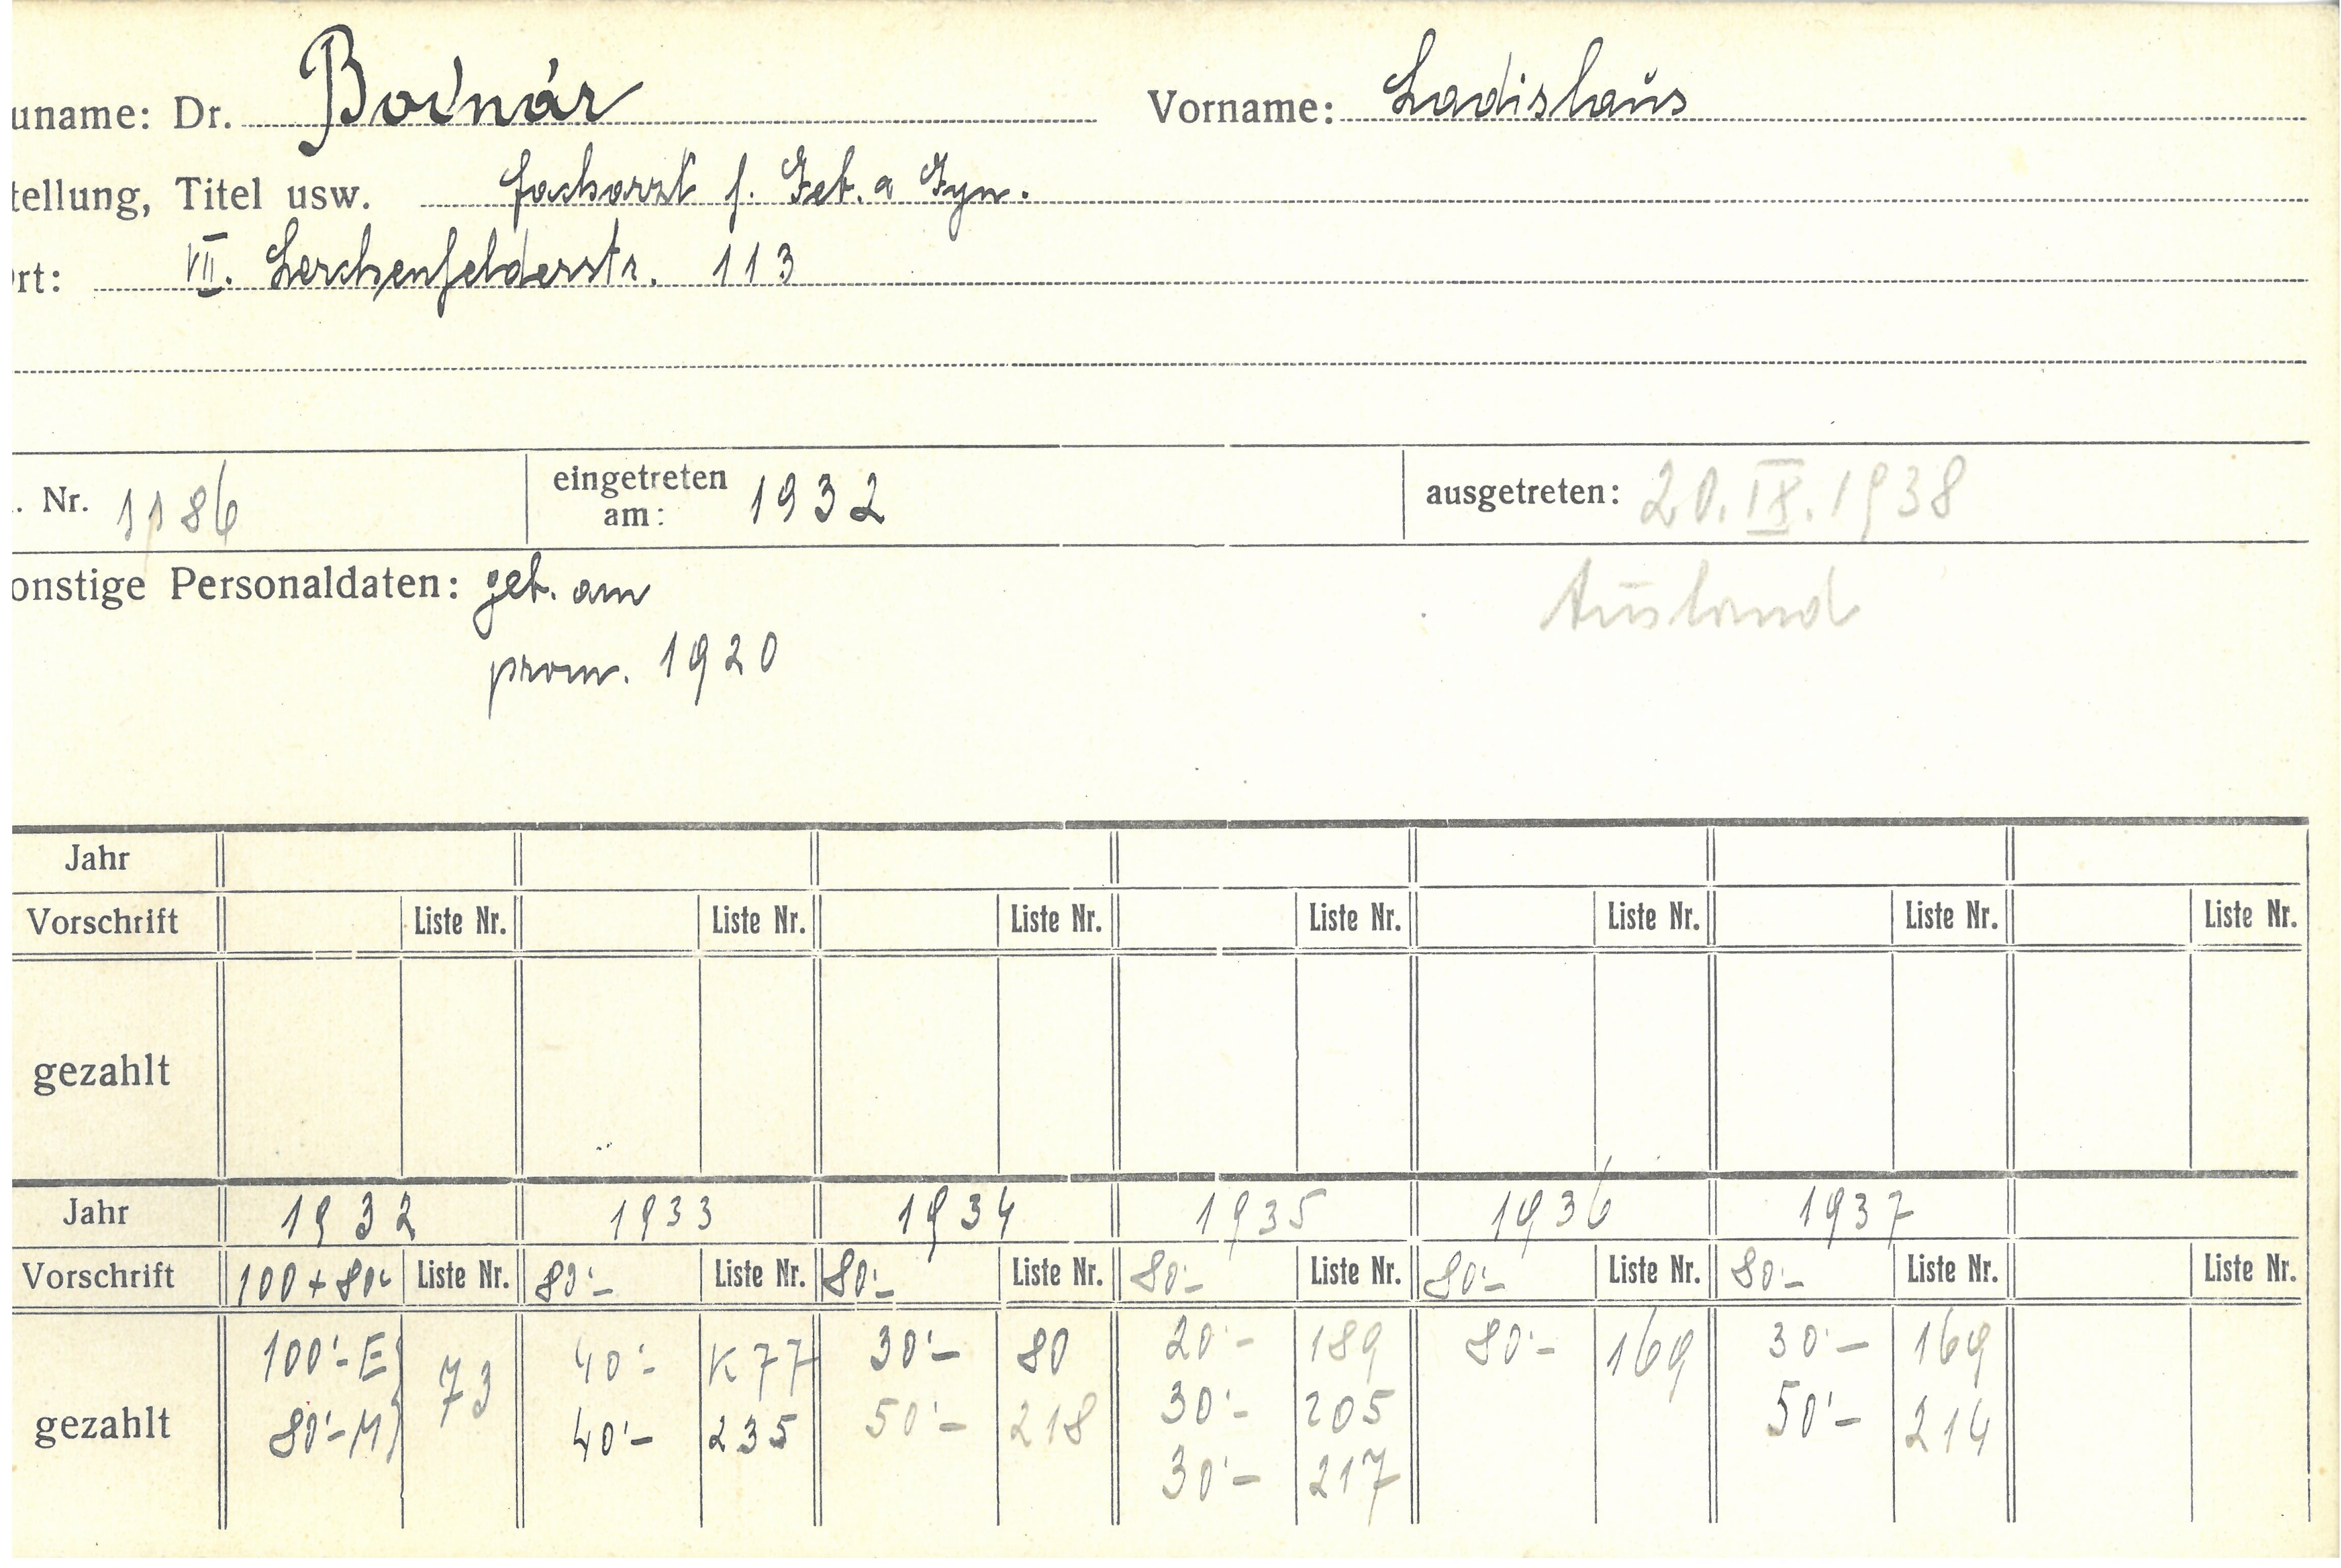 uname: Dr. Bodnár Vorname: Ladislaus
tellung, Titel usw. Facharzt f. Geb. u Gyn.
rt: VII. Lerchenfelderstr. 113
. Nr. 1186 eingetreten am: 1932 ausgetreten: 20. IX. 1938
onstige Personaldaten: geb. am Ausland
prom. 1920
Jahr
Vorschrift Liste Nr. Liste Nr. Liste Nr. Liste Nr. Liste Nr. Liste Nr. Liste Nr.
gezahlt
Jahr 1932 1933 1934 1935 1936 1937
Vorschrift 100 + 80'- Liste Nr. 80'- Liste Nr. 80'- Liste Nr. 80'- Liste Nr. 80'- Liste Nr. 80'- Liste Nr. Liste Nr.
100'- E} 73 40'- K 77 30'- 80 20'- 189 80'- 169 30'- 169
gezahlt 80'- M} 40'- 235 50'- 218 30'- 205 50'- 214
30'- 217